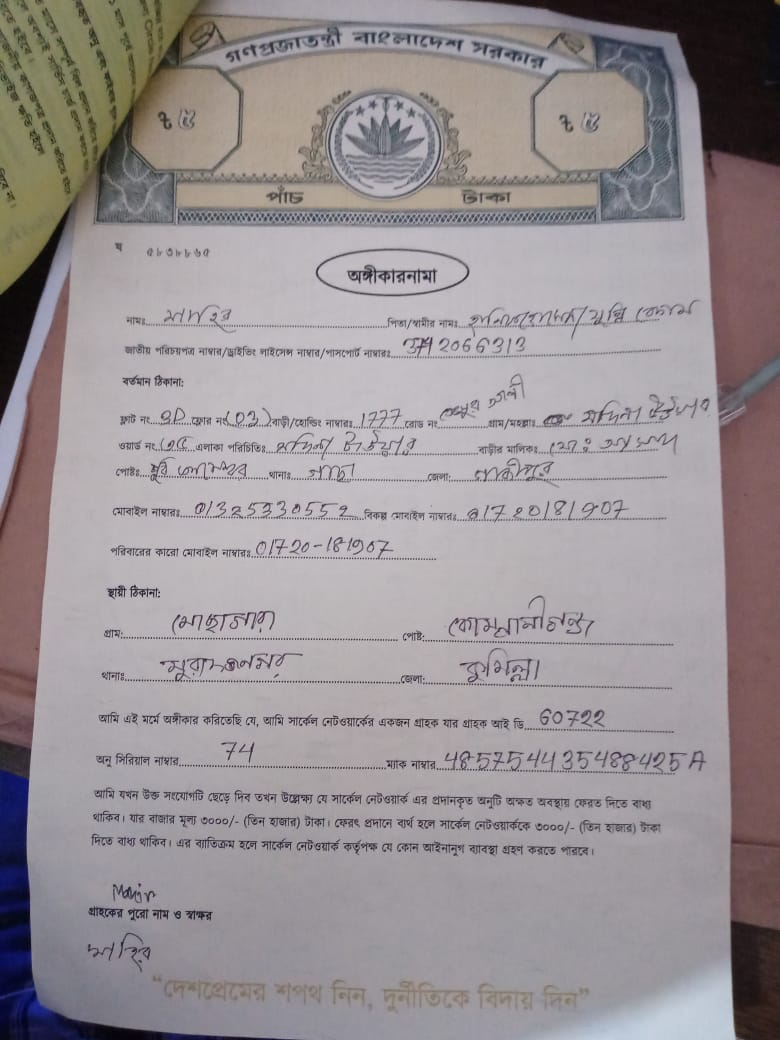 গণপ্রজাতন্ত্রী বাংলাদেশ সরকার
৳ ৫ ৳ ৫
পাঁচ টাকা
অঙ্গীকারনামা
নামঃ মাহির পিতা/স্বামীর নামঃ
জাতীয় পরিচয়পত্র নাম্বার/ড্রাইভিং লাইসেন্স নাম্বার/পাসপোর্ট নাম্বারঃ 3742066313
বর্তমান ঠিকানা:
ফ্লাট নং 3D ফ্লোর নং (03) বাড়ী/হোল্ডিং নাম্বারঃ 1777 রোড নং গ্রাম/মহল্লাঃ মদিনা
ওয়ার্ড নং এলাকা পরিচিতিঃ মদিনা বাড়ীর মালিকঃ মোঃ
পোষ্টঃ থানাঃ গাছা জেলা: গাজীপুর
মোবাইল নাম্বারঃ 01325330552 বিকল্প মোবাইল নাম্বারঃ 01720181907
পরিবারের কারো মোবাইল নাম্বারঃ 01720-181907
স্থায়ী ঠিকানা:
গ্রাম: পোষ্ট: কোম্পানীগঞ্জ
থানাঃ মুরাদনগর জেলা: কুমিল্লা
আমি এই মর্মে অঙ্গীকার করিতেছি যে, আমি সার্কেল নেটওয়ার্কের একজন গ্রাহক যার গ্রাহক আই ডি 60722
অনু সিরিয়াল নাম্বার 74 ম্যাক নাম্বার 485754435488425A
আমি যখন উক্ত সংযোগটি ছেড়ে দিব তখন উল্লেক্ষ্য যে সার্কেল নেটওয়ার্ক এর প্রদানকৃত অনুটি অক্ষত অবস্থায় ফেরত দিতে বাধ্য
থাকিব। যার বাজার মূল্য ৩০০০/- (তিন হাজার) টাকা। ফেরৎ প্রদানে ব্যর্থ হলে সার্কেল নেটওয়ার্ককে ৩০০০/- (তিন হাজার) টাকা
দিতে বাধ্য থাকিব। এর ব্যতিক্রম হলে সার্কেল নেটওয়ার্ক কর্তৃপক্ষ যে কোন আইনানুগ ব্যবস্থা গ্রহণ করতে পারবে।
গ্রাহকের পুরো নাম ও স্বাক্ষর
মাহির
“দেশপ্রেমের শপথ নিন, দুর্নীতিকে বিদায় দিন”